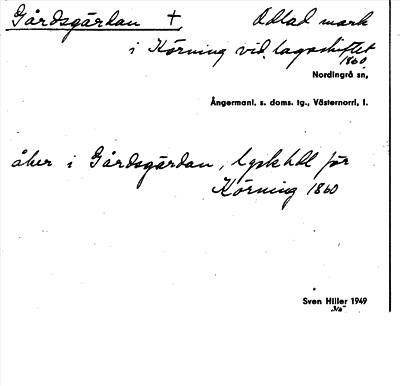 Gårdsgärdan + Odlad mark
i Körning vid lagaskiftet
1860.
Nordingrå sn,
Ångermanl. s. doms. tg., Västernorrl, l.
åker i Gårdsgärdan, lysk hdl för
Körning 1860
Sven Hiller 1949
3/8